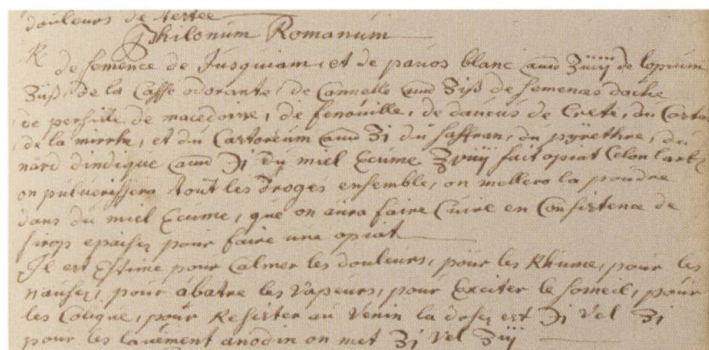 douleurs de testee
Philonum Romanum
℞ de semence de Jusquiam, et de pavos blanc ana ʒiiiij de lopium
ʒijß, de la Casse odorante, de Cannelle ana ʒiß de semences dache
de persille de macedoine, de fenouille, de daucus de Crete, du Costus
de la mirrhe, et du Castoreum ana ʒi du saffran, du pyrettre, du
nard dindique ana ℈i du miel Ecumé fait opiat selon lart
on pulverissera tout les drogues ensemble, on mellera la poudre
dans du miel Ecume, que on aura faire Cuire en Consistence de
sirop epaisez pour faire une opiat
Il est Estimé pour Calmer les douleurs, pour les Rhume, pour les
nausez, pour abatre les vapeurs, pour Exciter le someil, pour
les Colique, pour Resister au venin la dosez est ℈i vel ʒi
pour les lavement anodin on met ʒi vel ʒiij